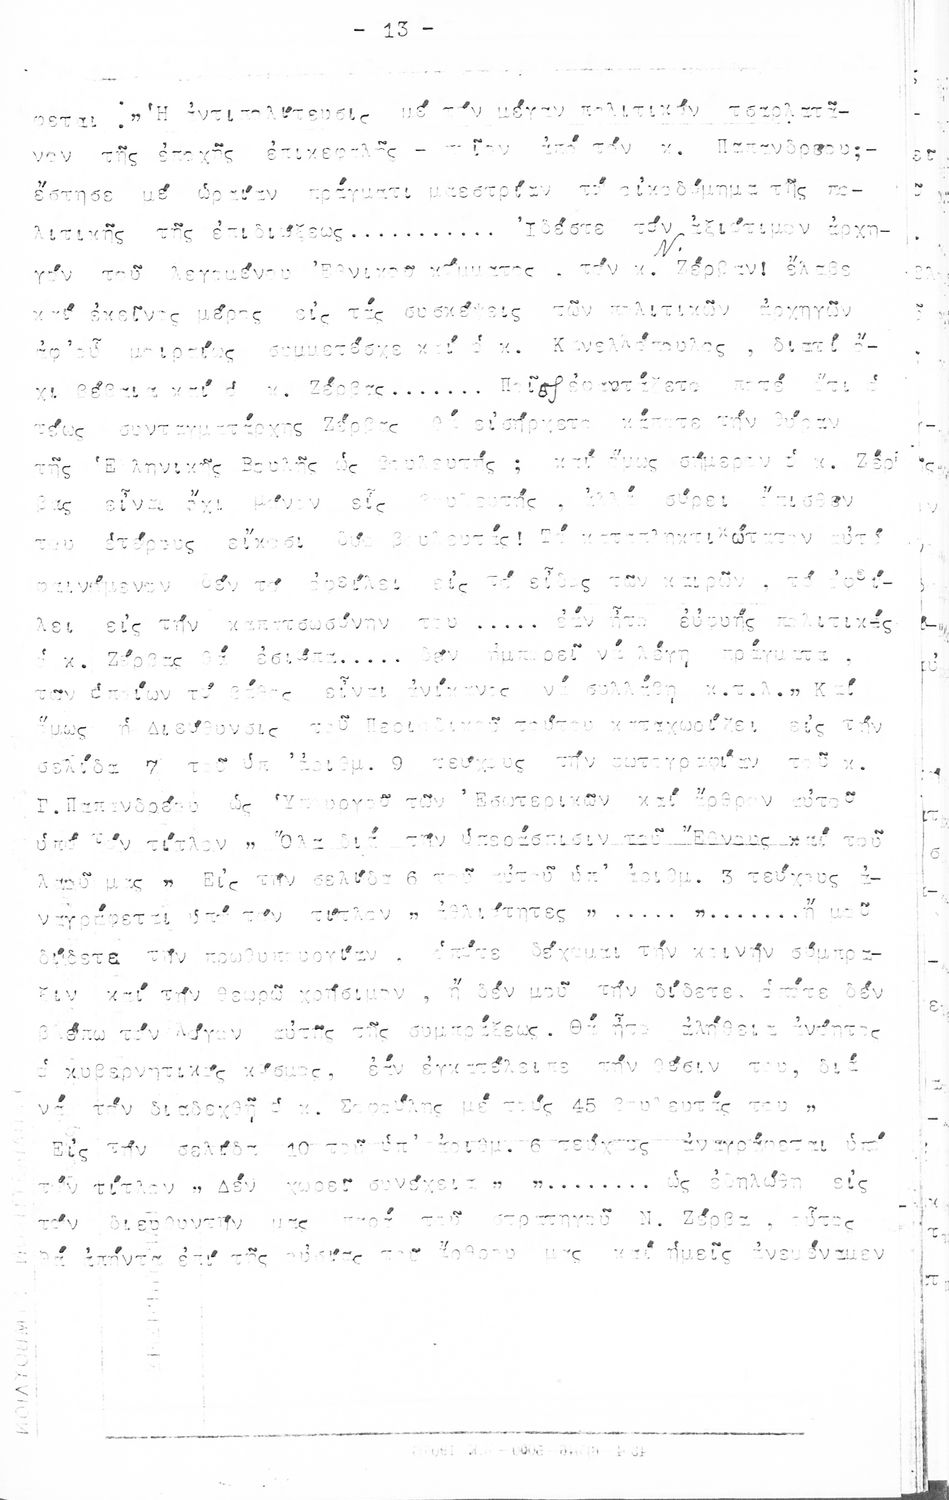 - 13 -
φεται : „ Ἡ ἀντιπολίτευσις μέ τόν μέγαν πολιτικόν τσαρλατᾶ-
νον τῆς ἐποχῆς ἐπικεφαλῆς - ποῖον ἀπό τόν κ. Παπανδρέου;-
ἔστησε μέ ὡραίαν πράγματι μαεστρίαν τό οἰκοδόμημα τῆς πο-
λιτικῆς τῆς ἐπιδιώξεως........... Ἰδέστε τόν ἀξιότιμον ἀρχη-
γόν τοῦ λεγομένου Ἐθνικοῦ κόμματος . τόν κ. Ν. Ζέρβαν! ἔλαβε
καί ἐκεῖνος μέρος εἰς τάς συσκέψεις τῶν πολιτικῶν ἀρχηγῶν
ἀφ'οῦ μοιραίως συμμετέσχε καί ὁ κ. Κανελλόπουλος , διατί ὄ-
χι βέβαια καί ὁ κ. Ζέρβας....... Ποῖος ἐφαντάζετο ποτέ ὅτι ὁ
τέως συνταγματάρχης Ζέρβας θά εἰσήρχετο κάποτε τήν θύραν
τῆς Ἑλληνικῆς Βουλῆς ὡς βουλευτής ; καί ὅμως σήμερον ὁ κ. Ζέρ
βας εἶναι ὄχι μόνον εἷς βουλευτής , ἀλλά σύρει ὄπισθεν
του ἑτέρους εἴκοσι δύο βουλευτάς! Τό καταπληκτικώτατον αὐτό
φαινόμενον δέν τό ὀφείλει εἰς τό εἶδος τῶν καιρῶν , τό ὀφεί-
λει εἰς τήν καπατσωσύνην του ..... ἐάν ἦτο εὐφυής πολιτικός
ὁ κ. Ζέρβας θά ἐσιώπα..... δέν ἠμπορεῖ νά λέγη πράγματα ,
των ὁποίων τό βάθος εἶναι ἀνίκανος νά συλλάβη κ.τ.λ.„ Καί
ὅμως ἡ Διεύθυνσις τοῦ Περιοδικοῦ τούτου καταχωρίζει εἰς τήν
σελίδα 7 τοῦ ὑπ 'ἀριθμ. 9 τεύχους τήν φωτογραφίαν τοῦ κ.
Γ.Παπανδρέου ὡς Ὑπουργοῦ τῶν Ἐσωτερικῶν καί ἄρθρον αὐτοῦ
ὑπό τόν τίτλον „ Ὅλα διά τήν ὑπεράσπισιν τοῦ Ἔθνους καί τοῦ
λαοῦ μας „ Εἰς τήν σελίδα 6 τοῦ αὐτοῦ ὑπ' ἀριθμ. 3 τεύχους ἀ-
ναγράφεται ὑπό τόν τίτλον „ ἀθλιότητες „ ..... „.......ἤ μοῦ
δίδετε τήν πρωθυπουργίαν . ὁπότε δέχομαι τήν κοινήν σύμπρα-
ξιν καί τήν θεωρῶ χρήσιμον , ἤ δέν μοῦ τήν δίδετε. ὁπότε δέν
βλέπω τόν λόγον αὐτῆς τῆς συμπράξεως. Θά ἦτο ἀλήθεια ἀνόητος
ὁ κυβερνητικός κόσμος, ἐάν ἐγκατέλειπε τήν θέσιν του, διά
νά τόν διαδεχθῆ ὁ κ. Σοφούλης μέ τούς 45 βουλευτάς του „
Εἰς τήν σελίδα 10 τοῦ ὑπ' ἀριθμ. 6 τεύχους ἀναγράφεται ὑπό
τόν τίτλον „ Δέν χωρεῖ συνέχεια „ „........ ὡς ἐδηλώθη εἰς
τόν διευθυντήν μας παρά τοῦ στρατηγοῦ Ν. Ζέρβα , οὗτος
θά ἀπήντα ἐπί τῆς οὐσίας του ἄρθρου μας καί ἡμεῖς ἀνεμέναμεν